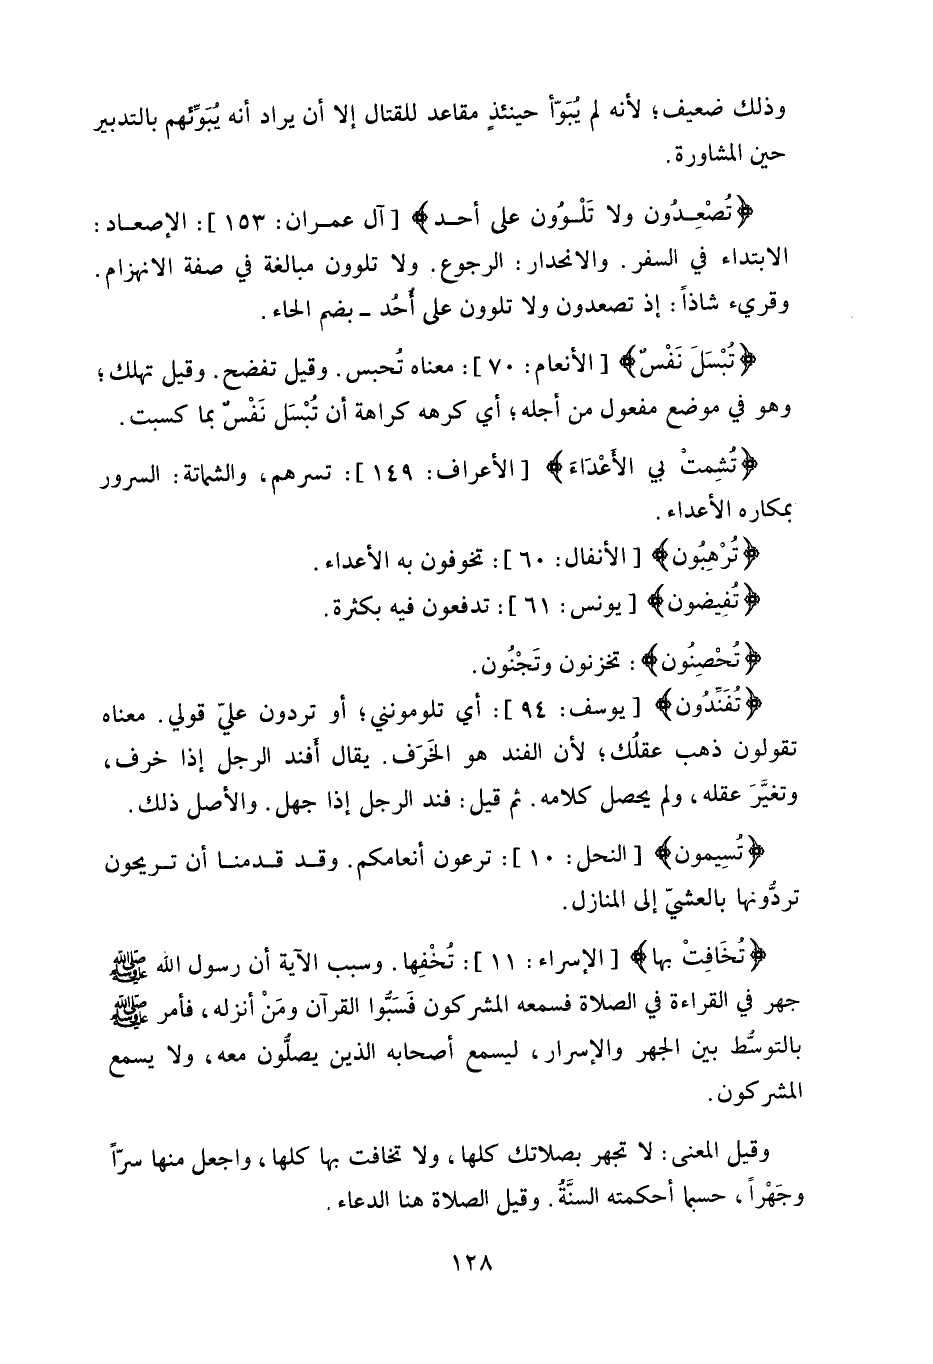 وذلك ضعيف؛ لأنه لم يُبَوّأ حينئذٍ مقاعد للقتال إلا أن يراد أنه يُبَوِّئهم بالتدبير
حين المشاورة.
﴿تُصْعِدُون ولا تَلْوُون على أحد﴾ [آل عمران: ١٥٣]: الإصعاد:
الابتداء في السفر. والانحدار: الرجوع. ولا تلوون مبالغة في صفة الانهزام.
وقريء شاذاً: إذ تصعدون ولا تلوون على أُحُد ـ بضم الحاء.
﴿تُبْسَلَ نَفْسٌ﴾ [الأنعام: ٧٠]: معناه تُحبس. وقيل تفضح. وقيل تهلك؛
وهو في موضع مفعول من أجله؛ أي كرهه كراهة أن تُبْسَل نَفْسٌ بما كسبت.
﴿تُشِمتْ بي الأَعْدَاءَ﴾ [الأعراف: ١٤٩]: تسرهم، والشماتة: السرور
بمكاره الأعداء.
﴿تُرْهِبُون﴾ [الأنفال: ٦٠]: تخوفون به الأعداء.
﴿تُفِيضون﴾ [يونس: ٦١]: تدفعون فيه بكثرة.
﴿تُحْصِنُون﴾: تخزنون وتَجْنُون.
﴿تُفَنِّدُون﴾ [يوسف: ٩٤]: أي تلومونني؛ أو تردون عليّ قولي. معناه
تقولون ذهب عقلُك؛ لأن الفند هو الخَرَف. يقال أَفند الرجل إذا خرف،
وتغيَّرَ عقله، ولم يحصل كلامه. ثم قيل: فند الرجل إذا جهل. والأصل ذلك.
﴿تُسِيمون﴾ [النحل: ١٠]: ترعون أنعامكم. وقد قدمنا أن تريحون
تردُّونها بالعشيّ إلى المنازل.
﴿تُخَافِتْ بها﴾ [الإسراء: ١١]: تُخْفِها. وسبب الآية أن رسول الله ﷺ
جهر في القراءة في الصلاة فسمعه المشركون فَسَبُّوا القرآن ومَنْ أنزله، فأمر ﷺ
بالتوسُّط بين الجهر والإسرار، ليسمع أصحابه الذين يصلُّون معه، ولا يسمع
المشركون.
وقيل المعنى: لا تجهر بصلاتك كلها، ولا تخافت بها كلها، واجعل منها سرّاً
وجَهْراً، حسبما أحكمته السنَّةُ. وقيل الصلاة هنا الدعاء.
١٢٨